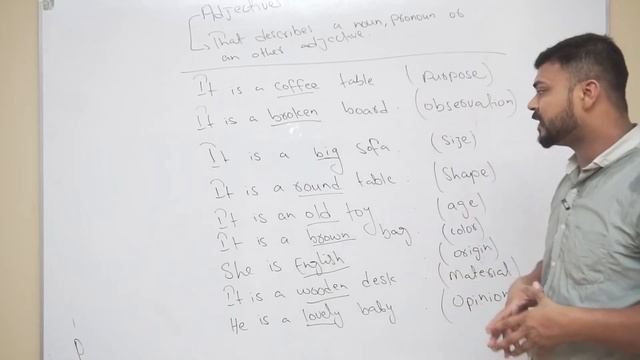 Adjective
That describes a noun, pronoun or
an other adjective.
It is a coffee table (Purpose)
It is a broken board. (observation)
It is a big sofa. (Size)
It is a round table. (Shape)
It is an old toy (age)
It is a brown bag. (color)
She is English (origin)
It is a wooden desk. (Material)
He is a lovely baby. (Opinion
P